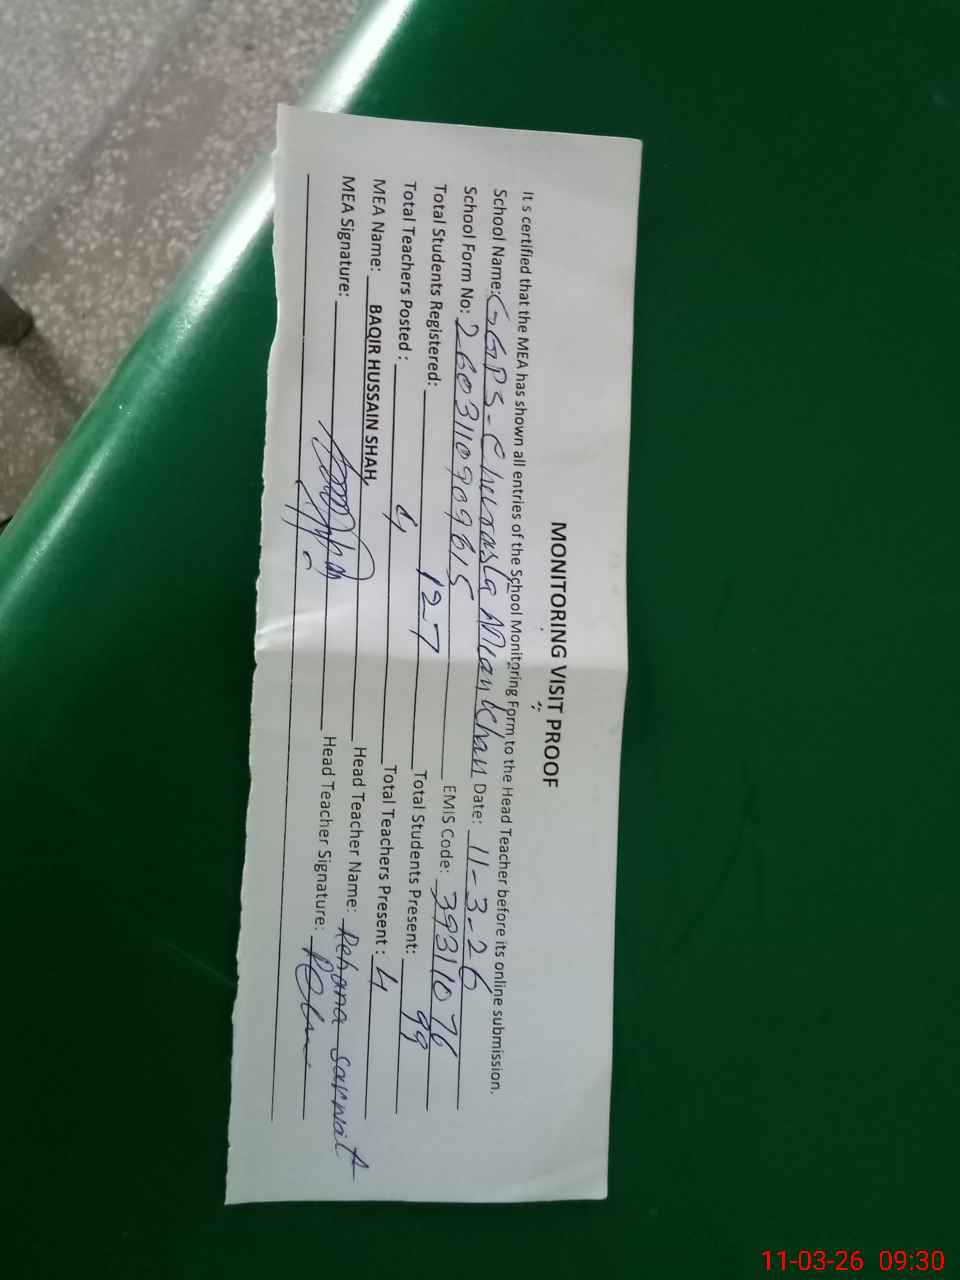 MONITORING VISIT PROOF
It s certified that the MEA has shown all entries of the School Monitoring Form to the Head Teacher before its online submission.
School Name: GGPS-Churasta Mian Khan Date: 11-3-26
School Form No: 2603110909615 EMIS Code: 39311076
Total Students Registered: 127 Total Students Present: 99
Total Teachers Posted : 4 Total Teachers Present : 4
MEA Name: BAQIR HUSSAIN SHAH, Head Teacher Name: Rehana Sarwat
MEA Signature: Head Teacher Signature:
11-03-26 09:30